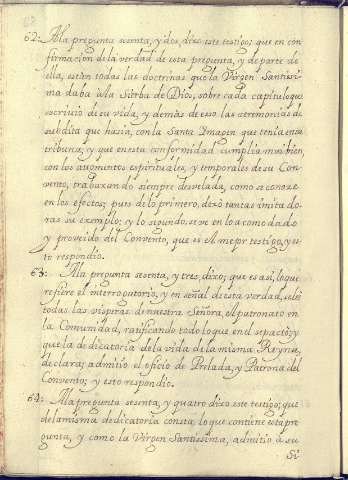 62: Ala pregunta sesenta, y dos, dixo este testigo; que en con
firmacion dela verdad de esta pregunta, y de parte de
ella, estàn todas las doctrinas que la Virgen Santissi
ma daba àla Sierba de Dios, sobre cada capitulo que
escrivio de su vida, y demàs de eso las ceremonias de
subdita que hasia, con la Santa Ymagen que tenia en su
tribuna; y que en esta conformidad cumplia mui bien,
con los augmentos espirituales, y temporales de su Con
vento, trabaxando siempre desvelada, como se conoze
en los efectos; pues de lo primero, dexò tantas imita do
ras su exemplo; y lo segundo, se ve en lo acomodado
y proveido del Convento, que es el mejor testigo, y es
to respondio.
63: Ala pregunta sesenta, y tres, dixo; que es asi, lo que
refiere el interrogatorio, y en señal de esta verdad,
todas las visperas de nuestra Señora, el patronato en
la Comunidad, ratificando todo lo que en el se pactò; y
que la dedicatoria dela vida de la misma Reyna,
declara; admitiò el oficio de Prelada, y Patrona del
Convento; y esto respondio.
64: Ala pregunta sesenta, y quatro dixo este testigo; que
dela misma dedicatoria consta, lo que contiene esta pre
gunta, y como la Virgen Santissima, admitio à su
Si